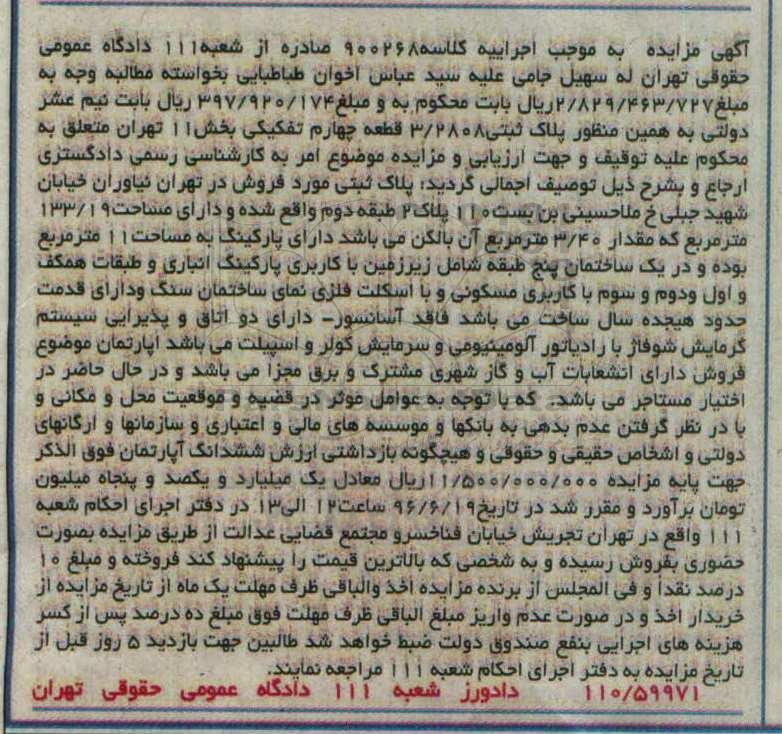 آگهی مزایده به موجب اجراییه کلاسه۹۰۰۲۶۸ صادره از شعبه۱۱۱ دادگاه عمومی
حقوقی تهران له سهیل جامی علیه سید عباس اخوان طباطبایی بخواسته مطالبه وجه به
مبلغ۲/۸۲۹/۴۶۳/۷۲۷ریال بابت محکوم به و مبلغ۳۹۷/۹۲۰/۱۷۴ ریال بابت نیم عشر
دولتی به همین منظور پلاک ثبتی۳/۲۸۰۸ قطعه چهارم تفکیکی بخش۱۱ تهران متعلق به
محکوم علیه توقیف و جهت ارزیابی و مزایده موضوع امر به کارشناسی رسمی دادگستری
ارجاع و بشرح ذیل توصیف اجمالی گردید؛ پلاک ثبتی مورد فروش در تهران نیاوران خیابان
شهید جبلی خ ملاحسینی بن بست۱۱۰ پلاک۲ طبقه دوم واقع شده و دارای مساحت۱۳۳/۱۹
مترمربع که مقدار ۳/۴۰ مترمربع آن بالکن می باشد دارای پارکینگ به مساحت۱۱ مترمربع
بوده و در یک ساختمان پنج طبقه شامل زیرزمین با کاربری پارکینگ انباری و طبقات همکف
و اول ودوم و سوم با کاربری مسکونی و با اسکلت فلزی نمای ساختمان سنگ ودارای قدمت
حدود هیجده سال ساخت می باشد فاقد آسانسور- دارای دو اتاق و پذیرایی سیستم
گرمایش شوفاژ با رادیاتور آلومینیومی و سرمایش کولر و اسپیلت می باشد آپارتمان موضوع
فروش دارای انشعابات آب و گاز شهری مشترک و برق مجزا می باشد و در حال حاضر در
اختیار مستاجر می باشد. که با توجه به عوامل موثر در قضیه و موقعیت محل و مکانی و
با در نظر گرفتن عدم بدهی به بانکها و موسسه های مالی و اعتباری و سازمانها و ارگانهای
دولتی و اشخاص حقیقی و حقوقی و هیچگونه بازداشتی ارزش ششدانگ آپارتمان فوق الذکر
جهت پایه مزایده ۱۱/۵۰۰/۰۰۰/۰۰۰ریال معادل یک میلیارد و یکصد و پنجاه میلیون
تومان برآورد و مقرر شد در تاریخ۹۶/۶/۱۹ ساعت۱۲ الی۱۳ در دفتر اجرای احکام شعبه
۱۱۱ واقع در تهران تجریش خیابان فناخسرو مجتمع قضایی عدالت از طریق مزایده بصورت
حضوری بفروش رسیده و به شخصی که بالاترین قیمت را پیشنهاد کند فروخته و مبلغ ۱۰
درصد نقدا و فی المجلس از برنده مزایده اخذ والباقی ظرف مهلت یک ماه از تاریخ مزایده از
خریدار اخذ و در صورت عدم واریز مبلغ الباقی ظرف مهلت فوق مبلغ ده درصد پس از کسر
هزینه های اجرایی بنفع صندوق دولت ضبط خواهد شد طالبین جهت بازدید ۵ روز قبل از
تاریخ مزایده به دفتر اجرای احکام شعبه ۱۱۱ مراجعه نمایند.
۱۱۰/۵۹۹۷۱ دادورز شعبه ۱۱۱ دادگاه عمومی حقوقی تهران